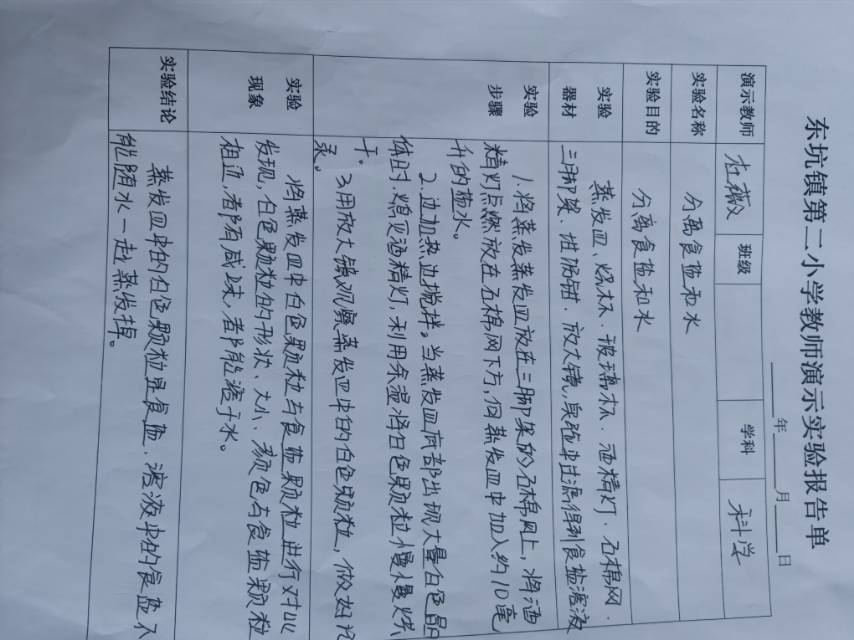 东坑镇第二小学教师演示实验报告单
年 月 日
演示教师 杜薇 班级 学科 科学
实验名称 分离食盐和水
实验目的 分离食盐和水
实验器材 蒸发皿、烧杯、玻璃杯、酒精灯、石棉网、
三脚架、坩埚钳、放大镜、实验中过滤得到食盐滤液
实验步骤 1.将蒸发蒸发皿放在三脚架的石棉网上,将酒
精灯点燃放在石棉网下方,向蒸发皿中加入约10毫
升的盐水。
2.边加热边搅拌。当蒸发皿底部出现大量白色晶
体时,熄灭酒精灯,利用余温将白色颗粒慢慢烤
干。
3.用放大镜观察蒸发皿中的白色颗粒,做好记
录。
实验现象 将蒸发皿中白色颗粒与食盐颗粒进行对比
发现,白色颗粒的形状、大小、颜色与食盐颗粒
相近,都有咸味,都能溶于水。
实验结论 蒸发皿中的白色颗粒是食盐,溶液中的食盐不
能随水一起蒸发掉。